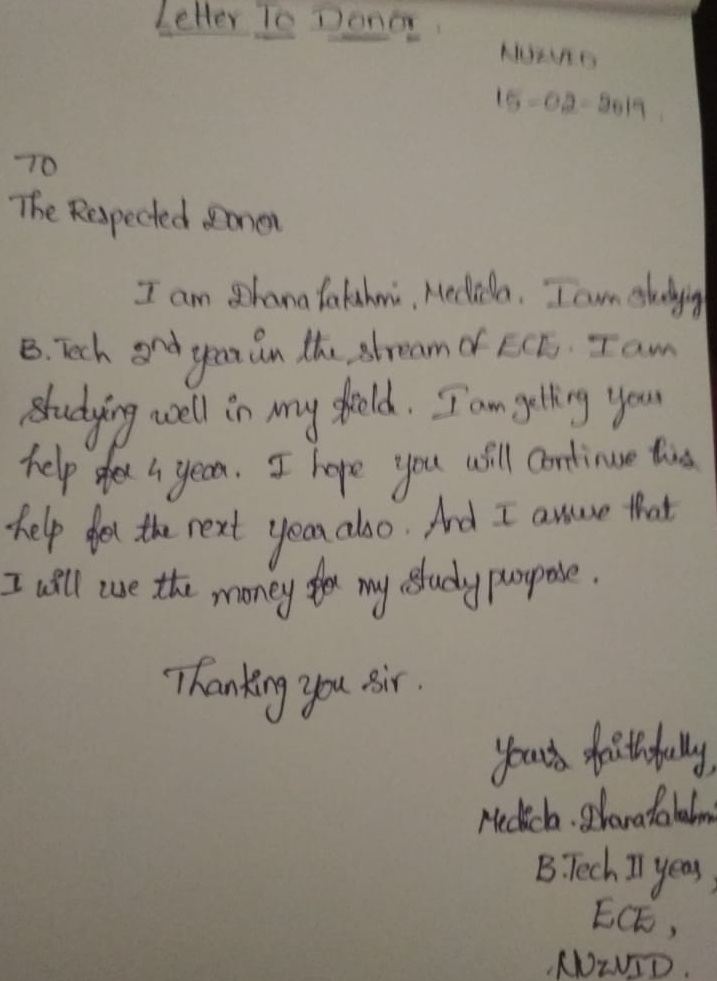 Letter To Donor.
NUZVID
15-02-2019.
TO
The Respected Donor
I am Dhana Lakshmi, Medida. I am studying
B.Tech 2nd year in the stream of ECE. I am
studying well in my field. I am getting your
help for 4 year. I hope you will continue this
help for the next year also. And I assure that
I will use the money for my study purpose.
Thanking you sir.
Yours faithfully,
Medida. Dhana Lakshmi
B.Tech II year,
ECE,
NUZVID.